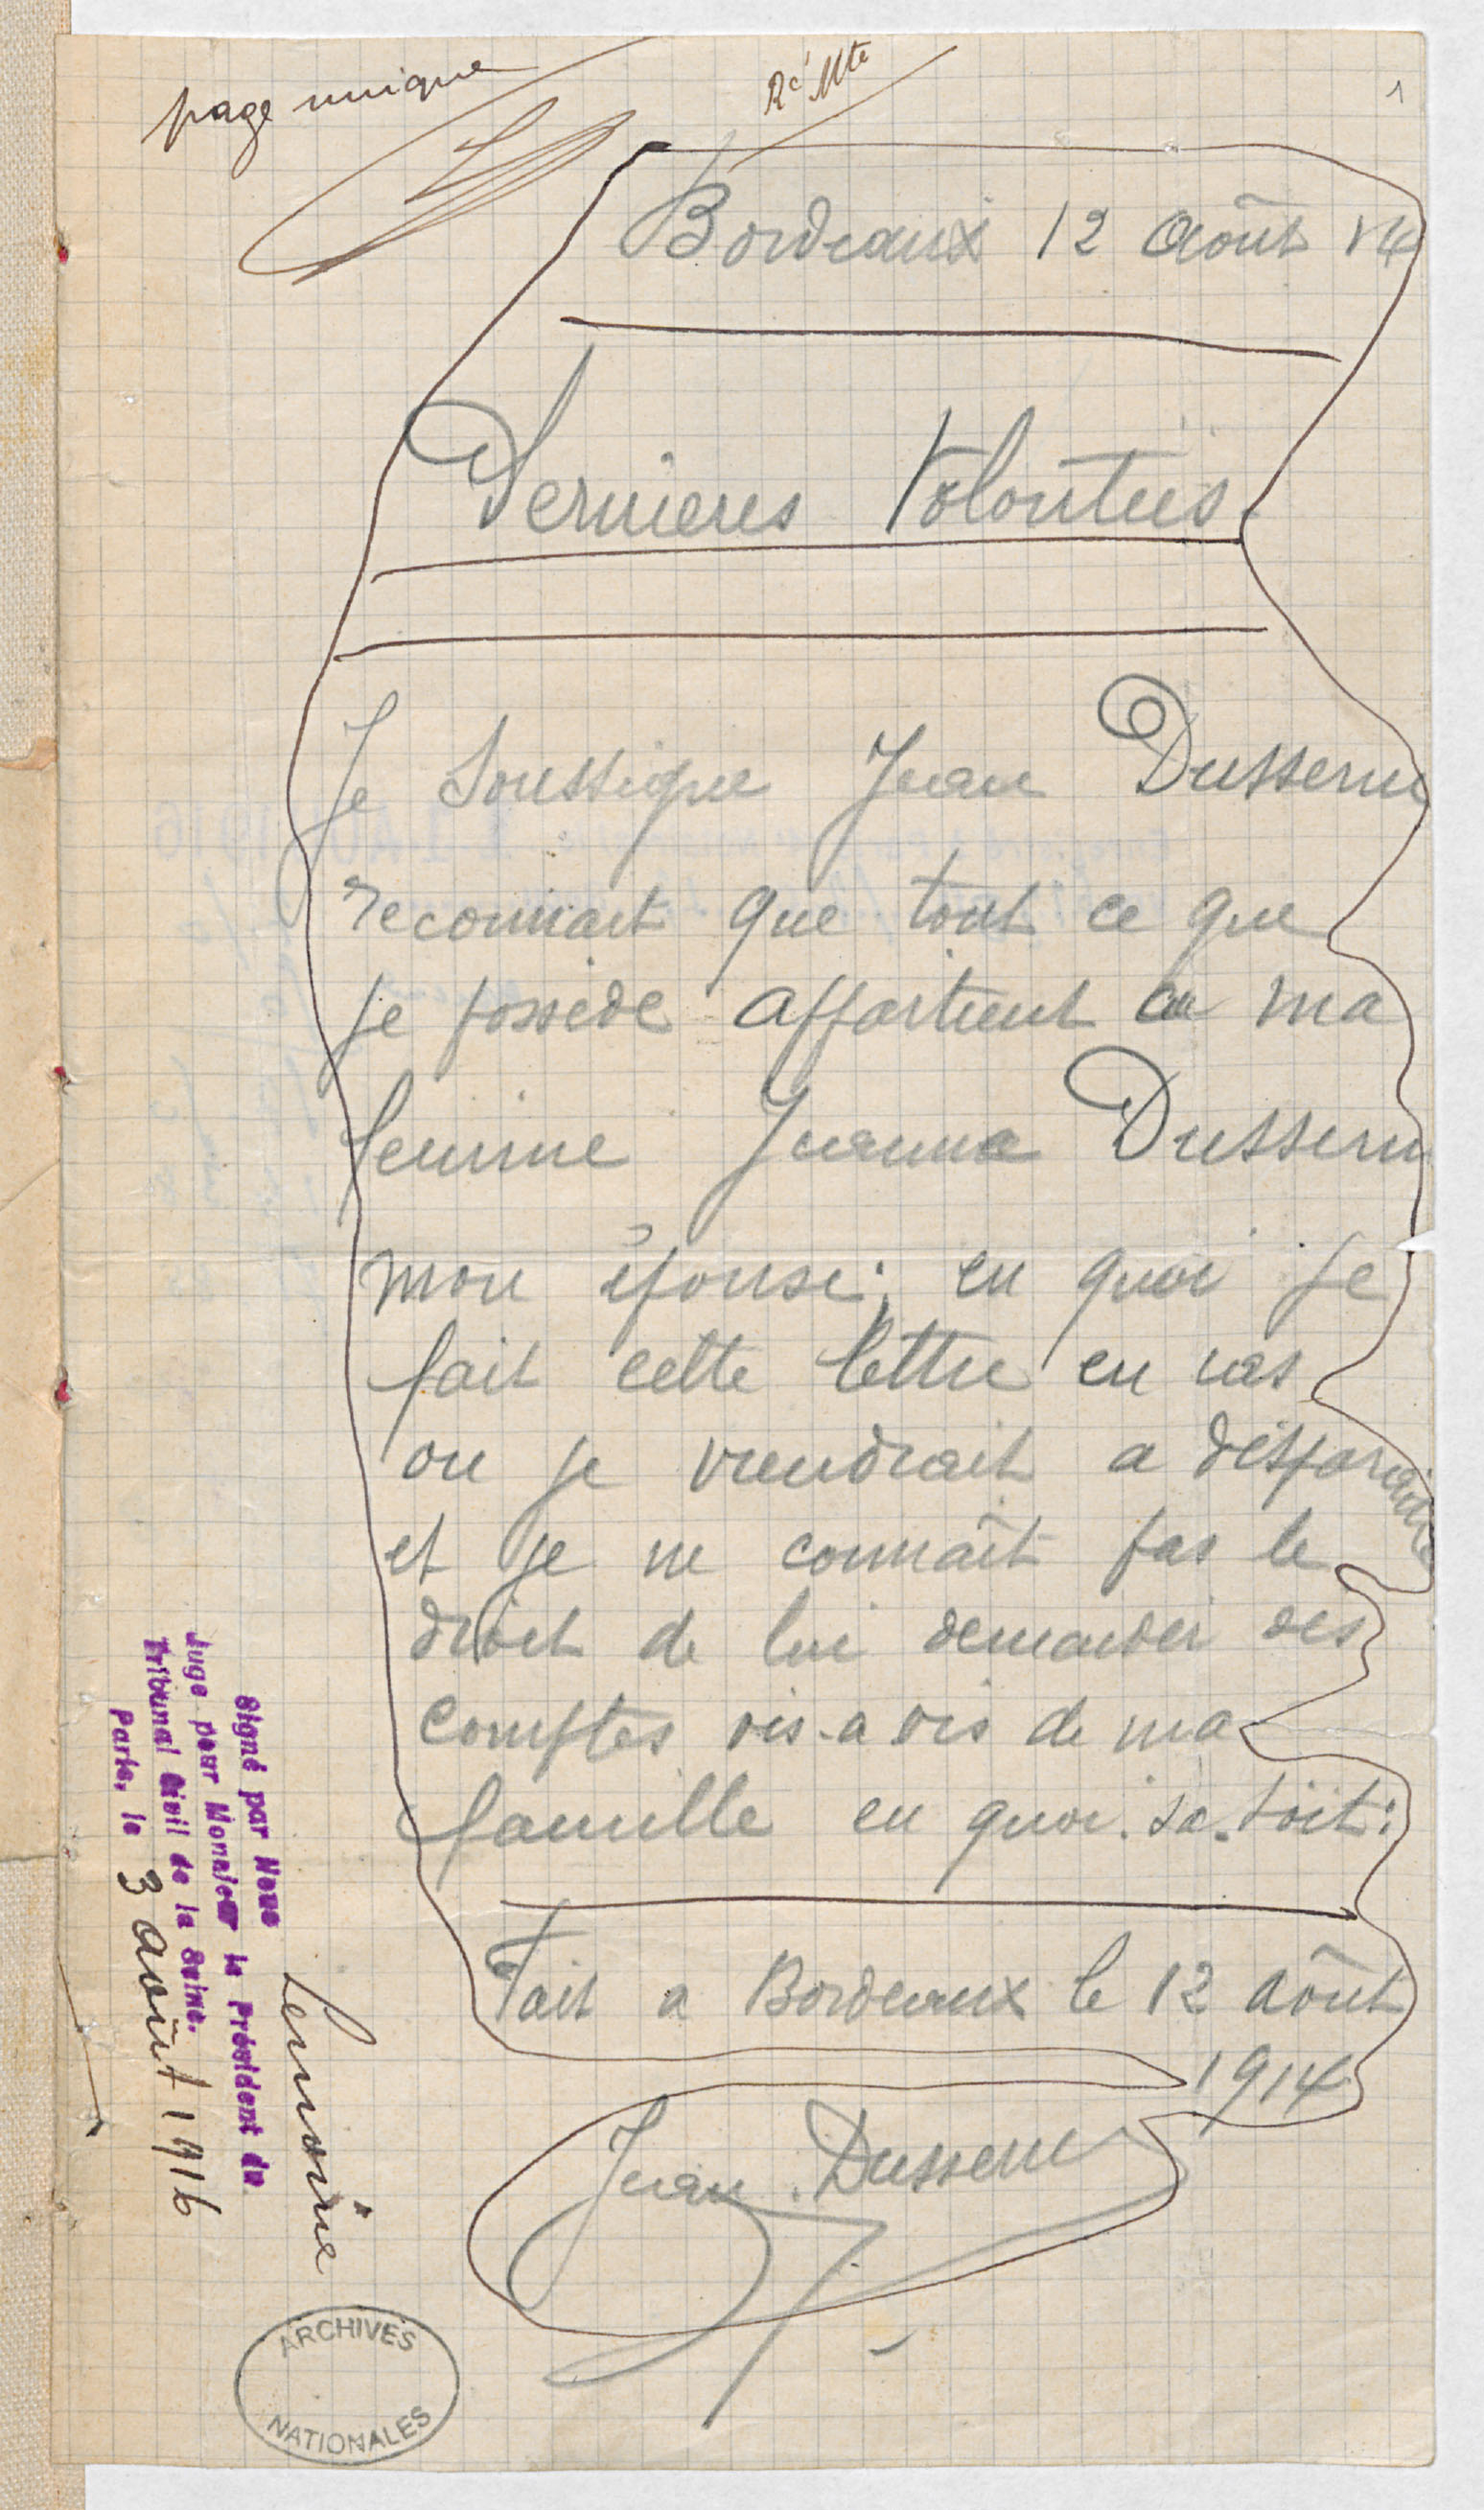 page unique
Bordeaux 12 Août 14
Dernieres Volontées
Je Soussigne Jean Dusserre
reconnait que tout ce que
je possede appartient a ma
femme Jeanne Dusserre
mon épouse; en quoi je
fait cette lettre en cas
ou je viendrait a disparaitre
et je ne connaît pas le
droit de lui demander des
comptes vis-a vis de ma
famille en quoi. sa. soit:
Fait a Bordeaux le 12 Août
1914
Jean. Dusserre
Signé par Nous
Juge pour Monsieur le Président du
Tribunal Civil de la Seine.
Paris, le 3 août 1916
Lemoine
ARCHIVES
NATIONALES